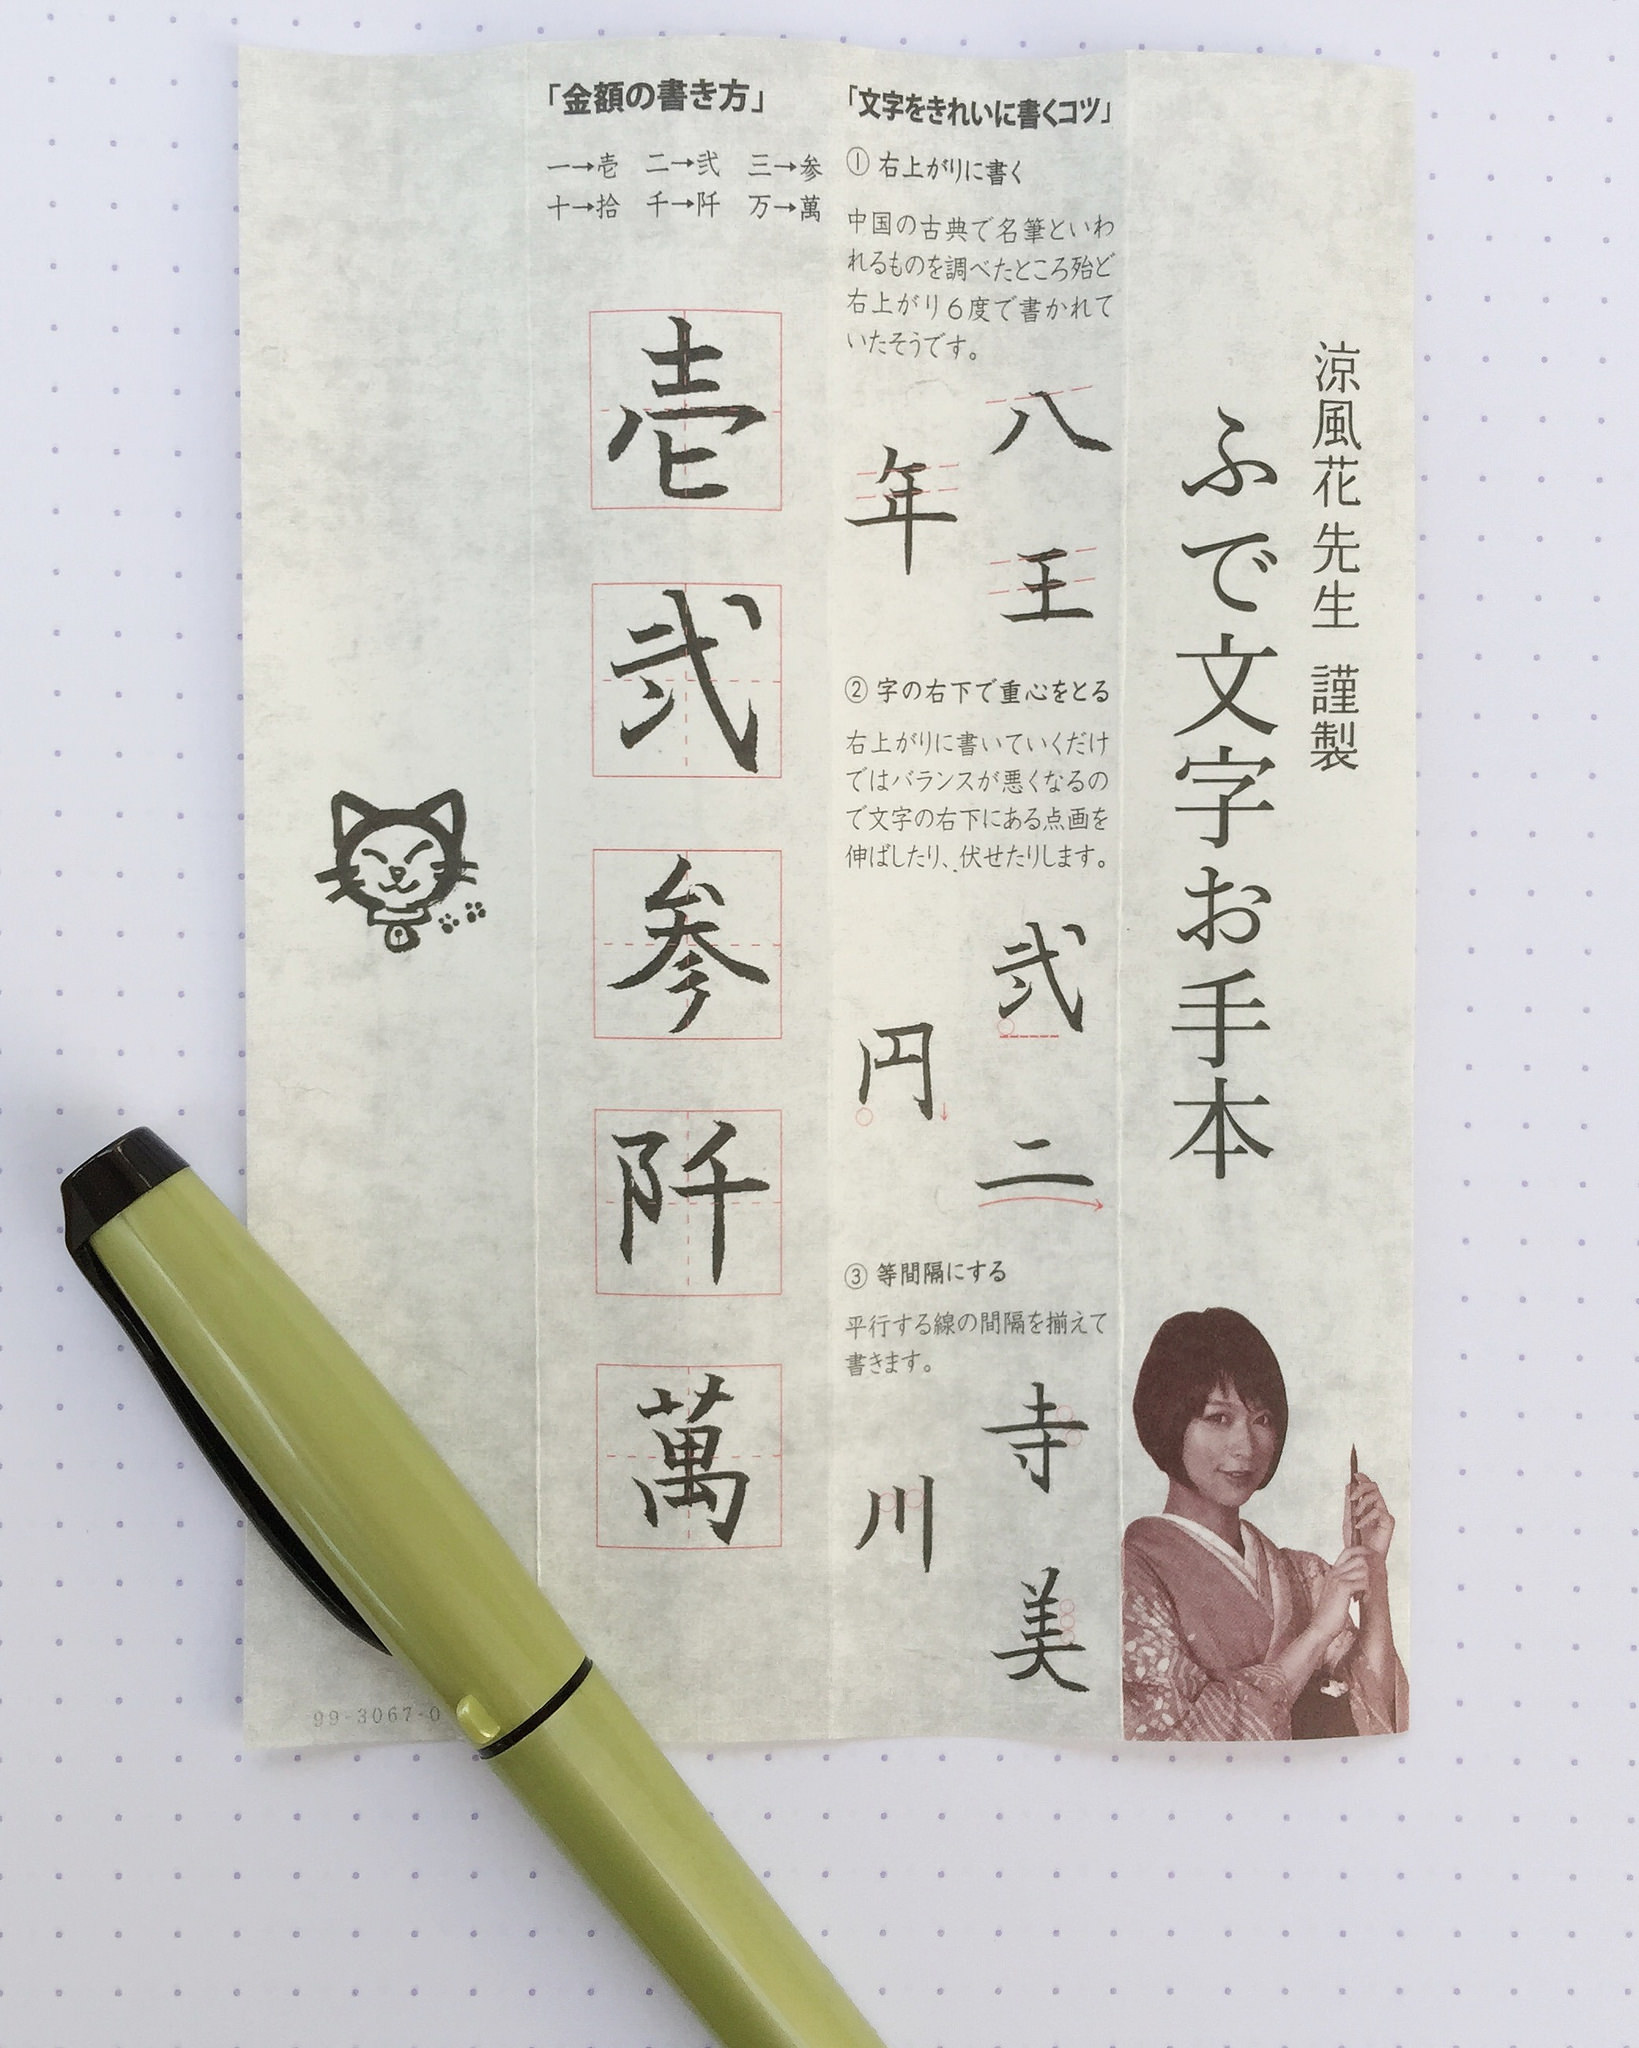 涼風花先生 謹製
ふで文字お手本
「文字をきれいに書くコツ」
① 右上がりに書く
中国の古典で名筆といわ
れるものを調べたところ殆ど
右上がり6度で書かれて
いたそうです。
八
王
年
② 字の右下で重心をとる
右上がりに書いていくだけ
ではバランスが悪くなるの
で文字の右下にある点画を
伸ばしたり、伏せたりします。
弐
二
円
③ 等間隔にする
平行する線の間隔を揃えて
書きます。
寺
美
川
「金額の書き方」
一→壱 二→弐 三→参
十→拾 千→阡 万→萬
壱
弐
参
阡
萬
99-3067-0